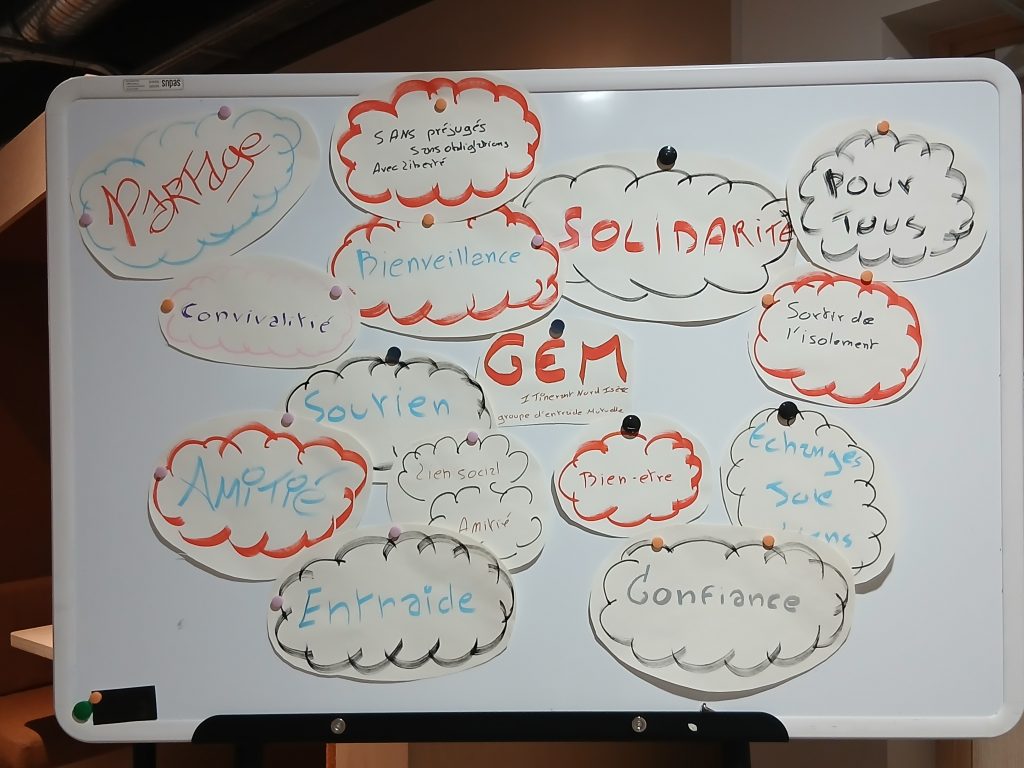 sedus
PARTAge
SANS préjugés
Sans obligations
Avec Liberté
SOLIDARITÉ
POUR
TOUS
Bienveillance
Convivalitié
Sortir de
l'isolement
GEM
ITinerant Nord Isère
groupe d'entraide Mutuelle
Soutien
AMITIÉ
Lien social
Amitié
Bien-etre
Echanges
Joie
Entraide
Confiance